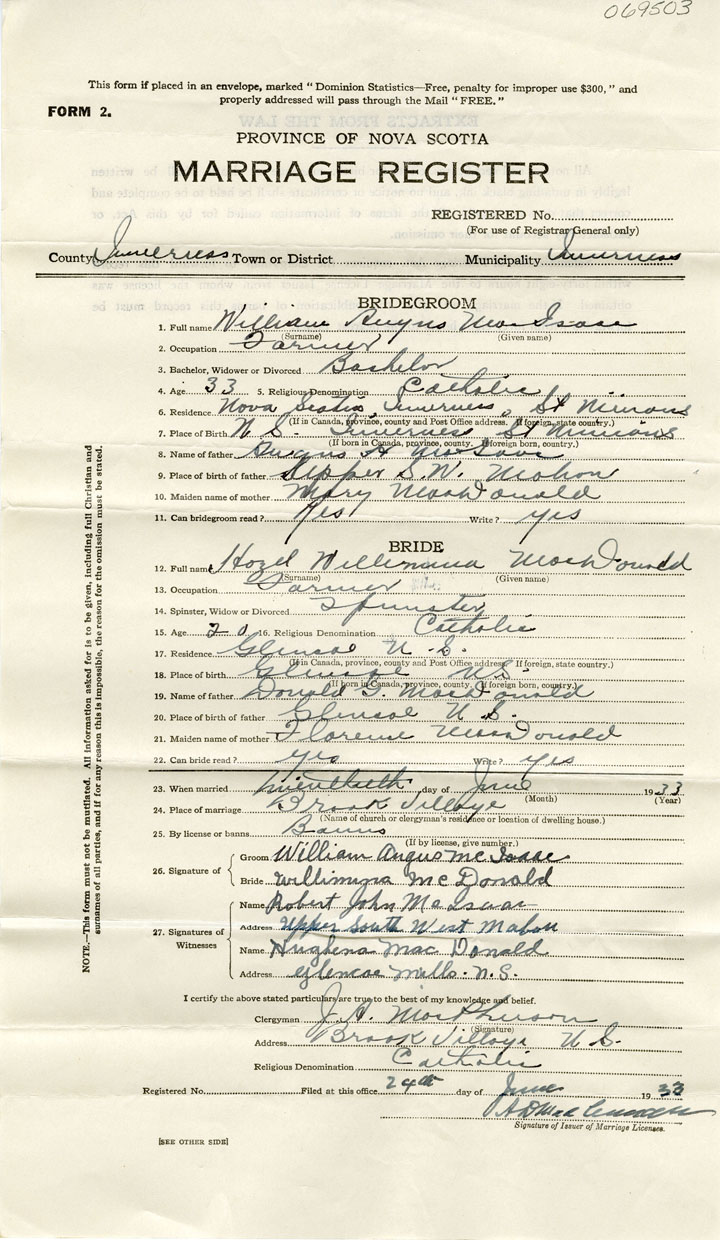 069503
This form if placed in an envelope, marked “ Dominion Statistics—Free, penalty for improper use $300, ” and
properly addressed will pass through the Mail “ FREE. ”
FORM 2.
PROVINCE OF NOVA SCOTIA
MARRIAGE REGISTER
REGISTERED No.
(For use of Registrar General only)
County Inverness Town or District Municipality Inverness
BRIDEGROOM
1. Full name William Angus MacIsaac
(Surname) (Given name)
2. Occupation Farmer
3. Bachelor, Widower or Divorced Bachelor
4. Age 33 5. Religious Denomination Catholic
6. Residence Nova Scotia, Inverness, St Ninians
(If in Canada, province, county and Post Office address. If foreign, state country.)
7. Place of Birth N.S. Inverness St Ninians
(If born in Canada, province, county. If foreign born, country.)
8. Name of father Angus A MacIsaac
9. Place of birth of father Upper S.W. Mabou
10. Maiden name of mother Mary MacDonald
11. Can bridegroom read? Yes Write? yes
BRIDE
12. Full name Hazel Willimina MacDonald
(Surname) (Given name)
13. Occupation Farmer
14. Spinster, Widow or Divorced Spinster
15. Age 20 16. Religious Denomination Catholic
17. Residence Glencoe N.S.
(If in Canada, province, county and Post Office address. If foreign, state country.)
18. Place of birth Glencoe NS.
(If born in Canada, province, county. If foreign born, country.)
19. Name of father Donald G. MacDonald
20. Place of birth of father Glencoe N.S.
21. Maiden name of mother Florence MacDonald
22. Can bride read? yes Write? yes
23. When married twentieth day of June 1933
(Month) (Year)
24. Place of marriage Brook Village
(Name of church or clergyman's residence or location of dwelling house.)
25. By license or banns Banns
(If by license, give number.)
26. Signature of
Groom William Angus McIsaac
Bride Willimina McDonald
27. Signatures of Witnesses
Name Robert John MacIsaac
Address Upper South West Mabou
Name Hughena MacDonald
Address Glencoe Mills. N.S.
I certify the above stated particulars are true to the best of my knowledge and belief.
Clergyman J.A. MacPherson
(Signature)
Address Brook Village N.S.
Religious Denomination Catholic
Registered No. Filed at this office 24th day of June 1933
Signature of Issuer of Marriage Licenses.
[SEE OTHER SIDE]
NOTE.—This form must not be mutilated. All information asked for is to be given, including full Christian and
surnames of all parties, and if for any reason this is impossible, the reason for the omission must be stated.